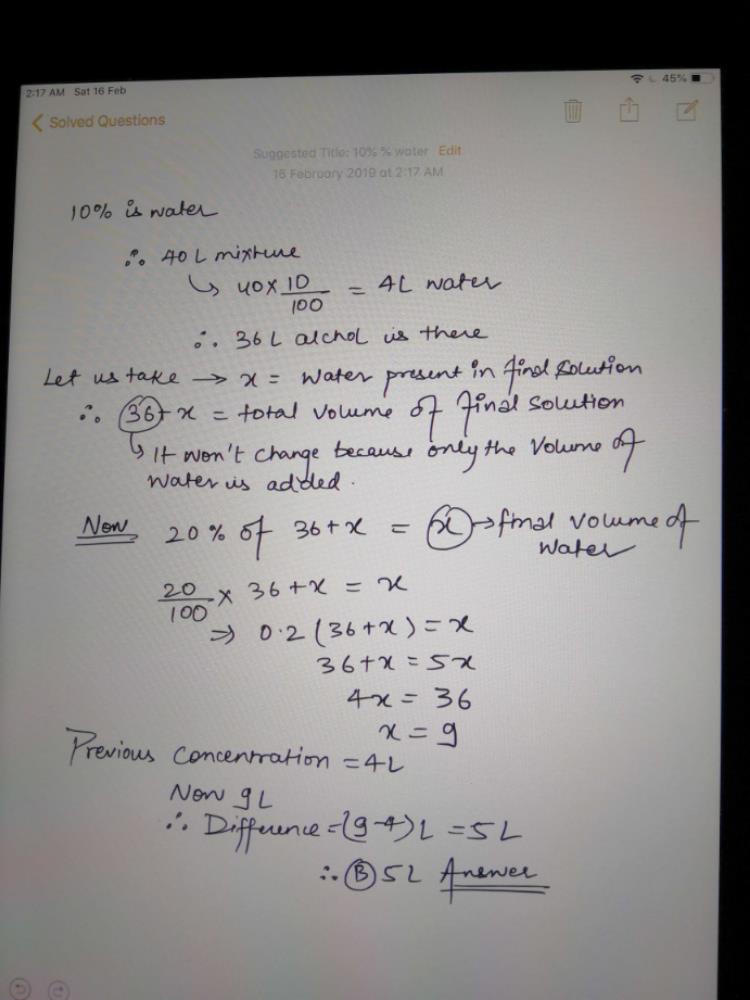 2:17 AM Sat 16 Feb 45%
Solved Questions
Suggested Title: 10% % water Edit
16 February 2019 at 2:17 AM
10% is water
∴ 40 L mixture
↳ 40 × 10/100 = 4L water
∴ 36 L alchol is there
Let us take → x = Water present in final solution
∴ 36 + x = total volume of final solution
↳ It won't change because only the Volume of
Water is added.
Now 20% of 36 + x = x → final volume of
Water
20/100 × 36 + x = x
⇒ 0.2 (36 + x) = x
36 + x = 5x
4x = 36
x = 9
Previous Concentration = 4L
Now 9L
∴ Difference = (9-4) L = 5L
∴ (B) 5L Answer